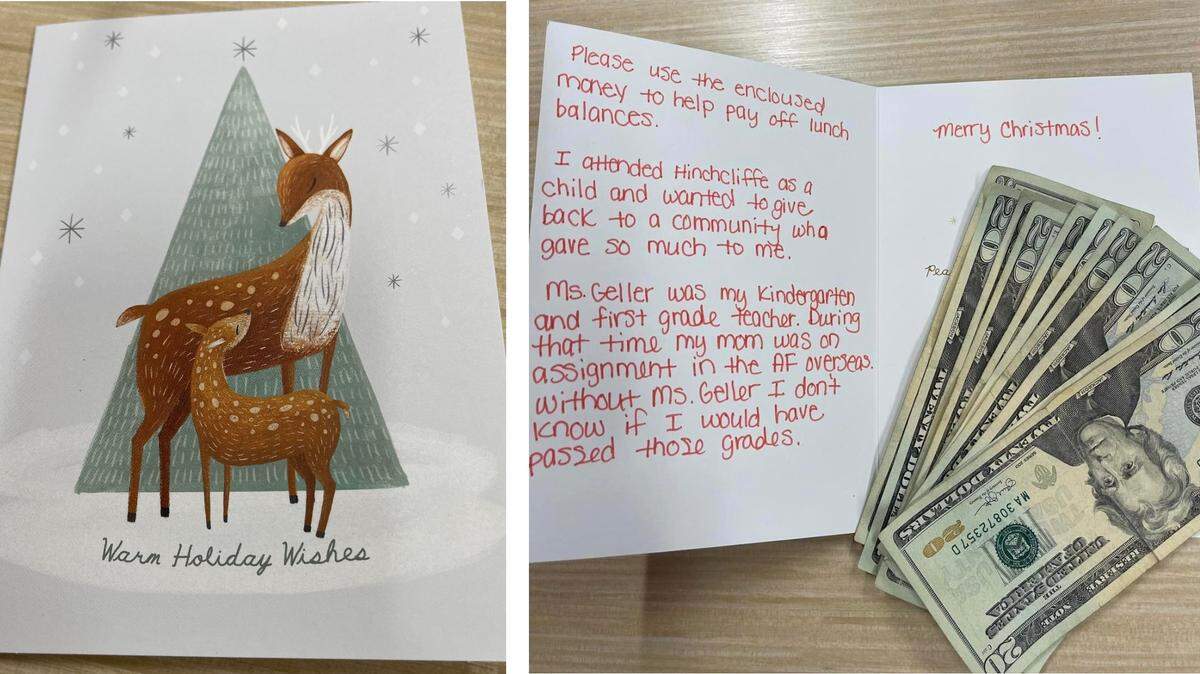 Warm Holiday Wishes
Please use the encloused
money to help pay off lunch
balances.
I attended Hinchcliffe as a
child and wanted to give
back to a community wha
gave so much to me.
Ms. Geller was my Kindergarten
and first grade teacher. During
that time my mom was on
assignment in the AF overseas.
Without Ms. Geller I don't
know if I would have
passed those grades.
Merry Christmas!
Pea
20
20
20
20
20
TWENTY DOLLARS
MA 30872357 D
THE
UNITED STATES
OF AMERICA
20